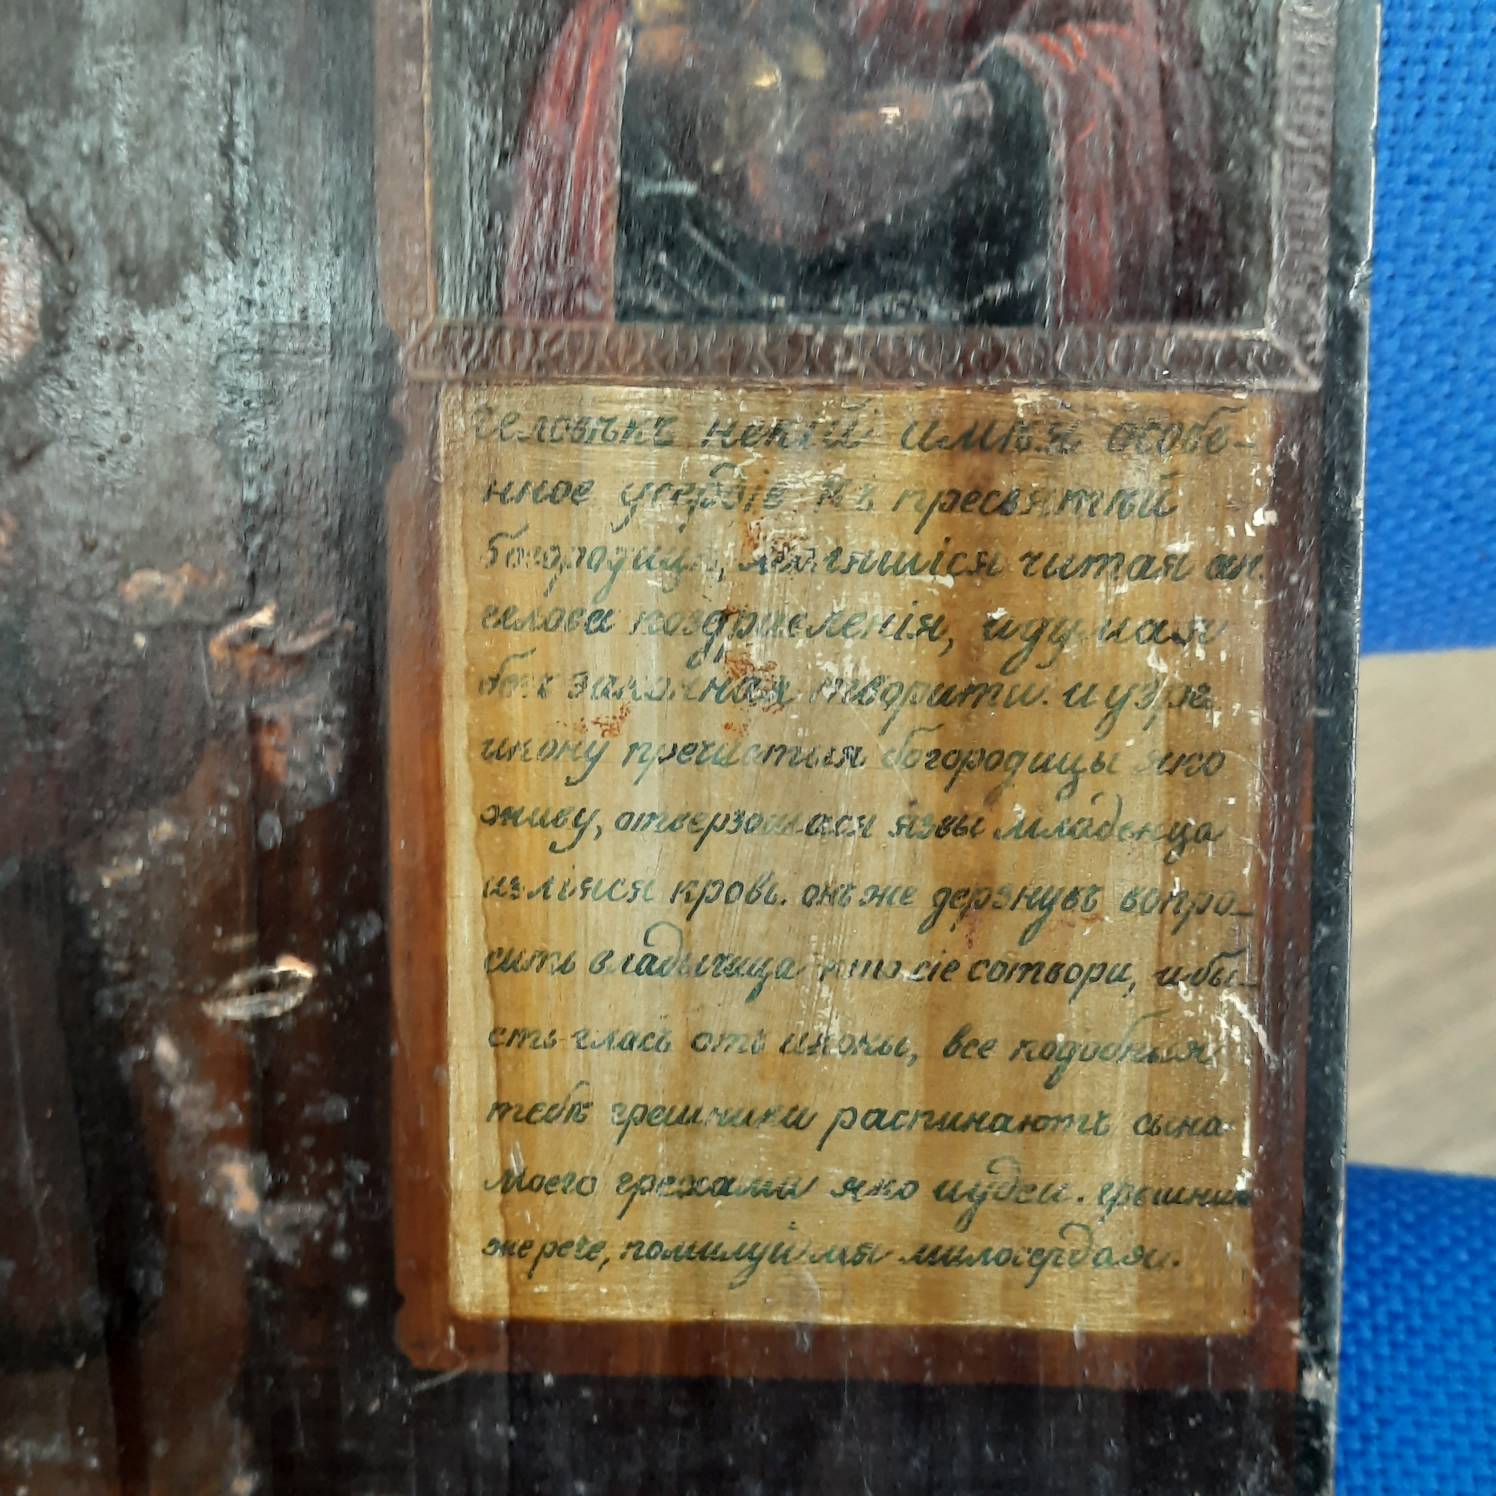 Человѣкъ некій имѣя особе-
нное усердіе къ пресвятѣй
богородицѣ, читая ан
гелова поздравленія, идумая
творити. и узре
икону пречистыя богородицы яко
живу, отверзошася язвы младенца
изліяся кровь. онъже дерзнувъ вопро-
сить владычица кто сіе сотвори, и бы-
сть гласъ отъ иконы, все подобныя
тебѣ грешники распинаютъ сына
моего грехами яко иудеи. грешник
же рече, помилуй мя милосердая.